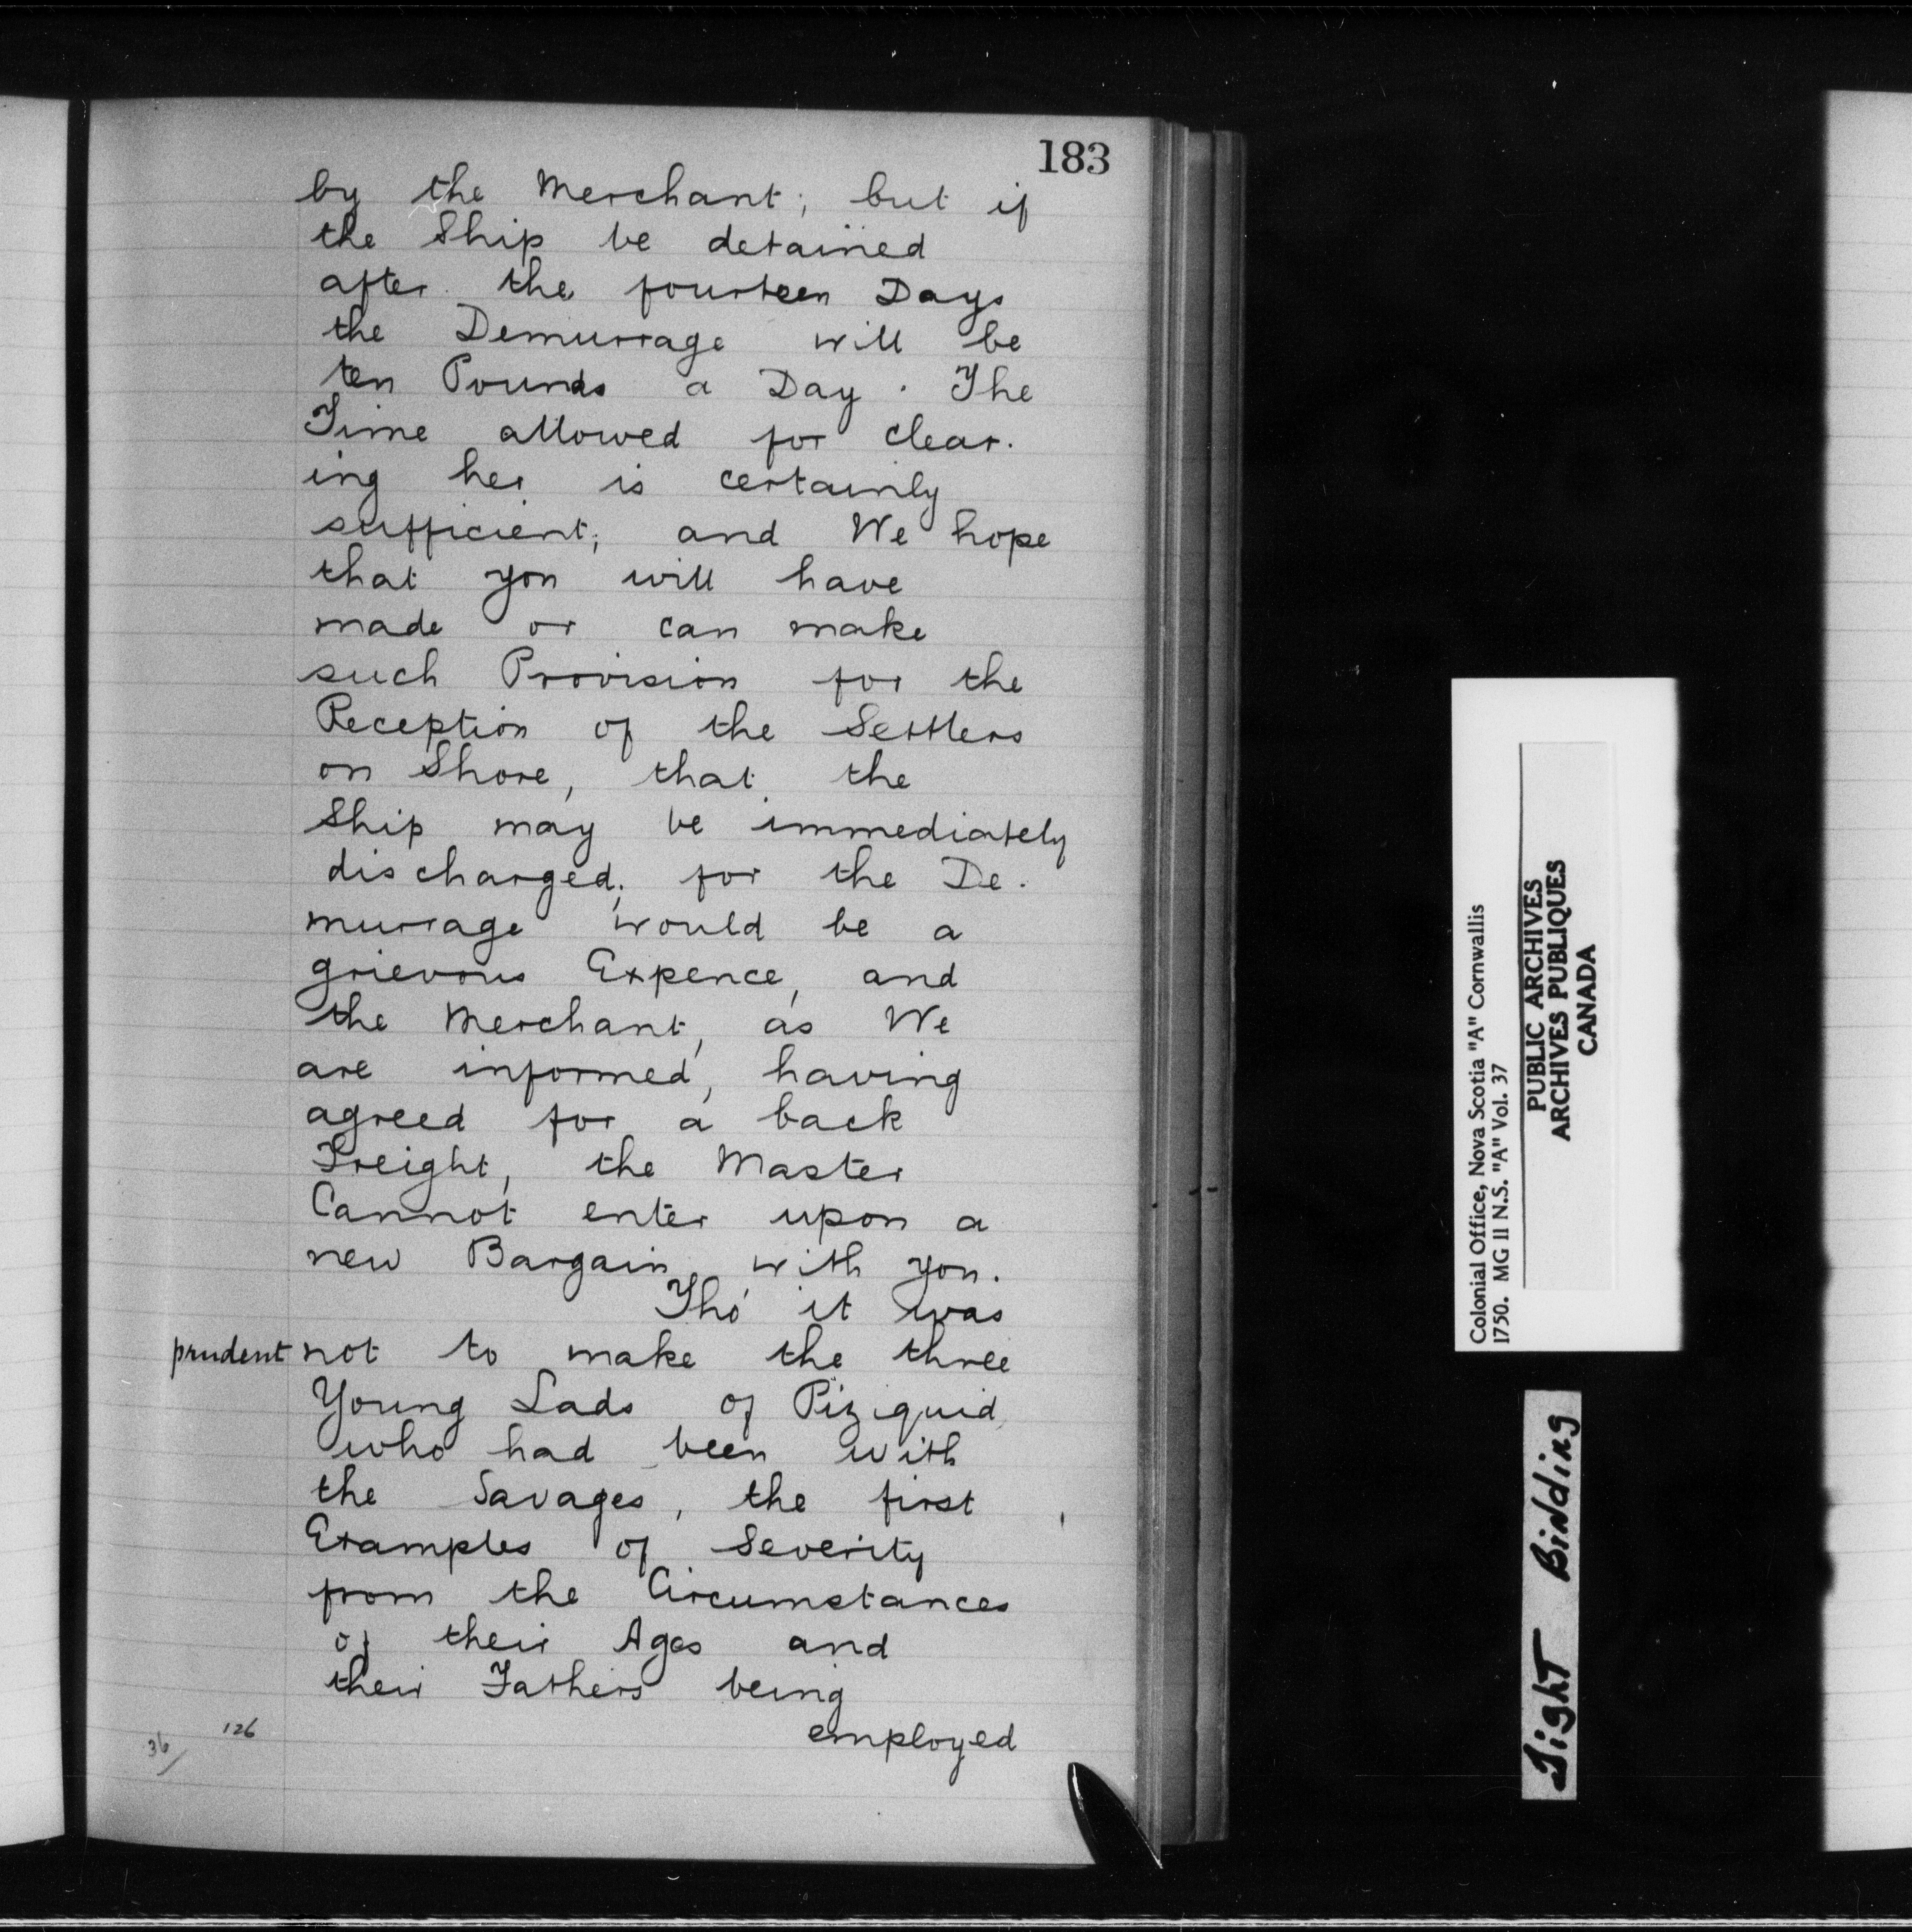 183
by the Merchant; but if
the Ship be detained
after the fourteen Days
the Demurrage will be
ten Pounds a Day. The
Time allowed for clear-
ing her is certainly
sufficient; and We hope
that you will have
made or can make
such Provision for the
Reception of the Settlers
on Shore, that the
Ship may be immediately
discharged; for the De-
murrage would be a
grievous Expence, and
the Merchant, as We
are informed, having
agreed for a back
Freight, the Master
Cannot enter upon a
new Bargain with you.
Tho' it was
prudent not to make the three
Young Lads of Piziquid
who had been with
the Savages, the first
Examples of Severity
from the Circumstances
of their Ages and
their Fathers being
employed
126
36/
Colonial Office, Nova Scotia "A" Cornwallis
1750. MG 11 N.S. "A" Vol. 37
PUBLIC ARCHIVES
ARCHIVES PUBLIQUES
CANADA
Tight Binding